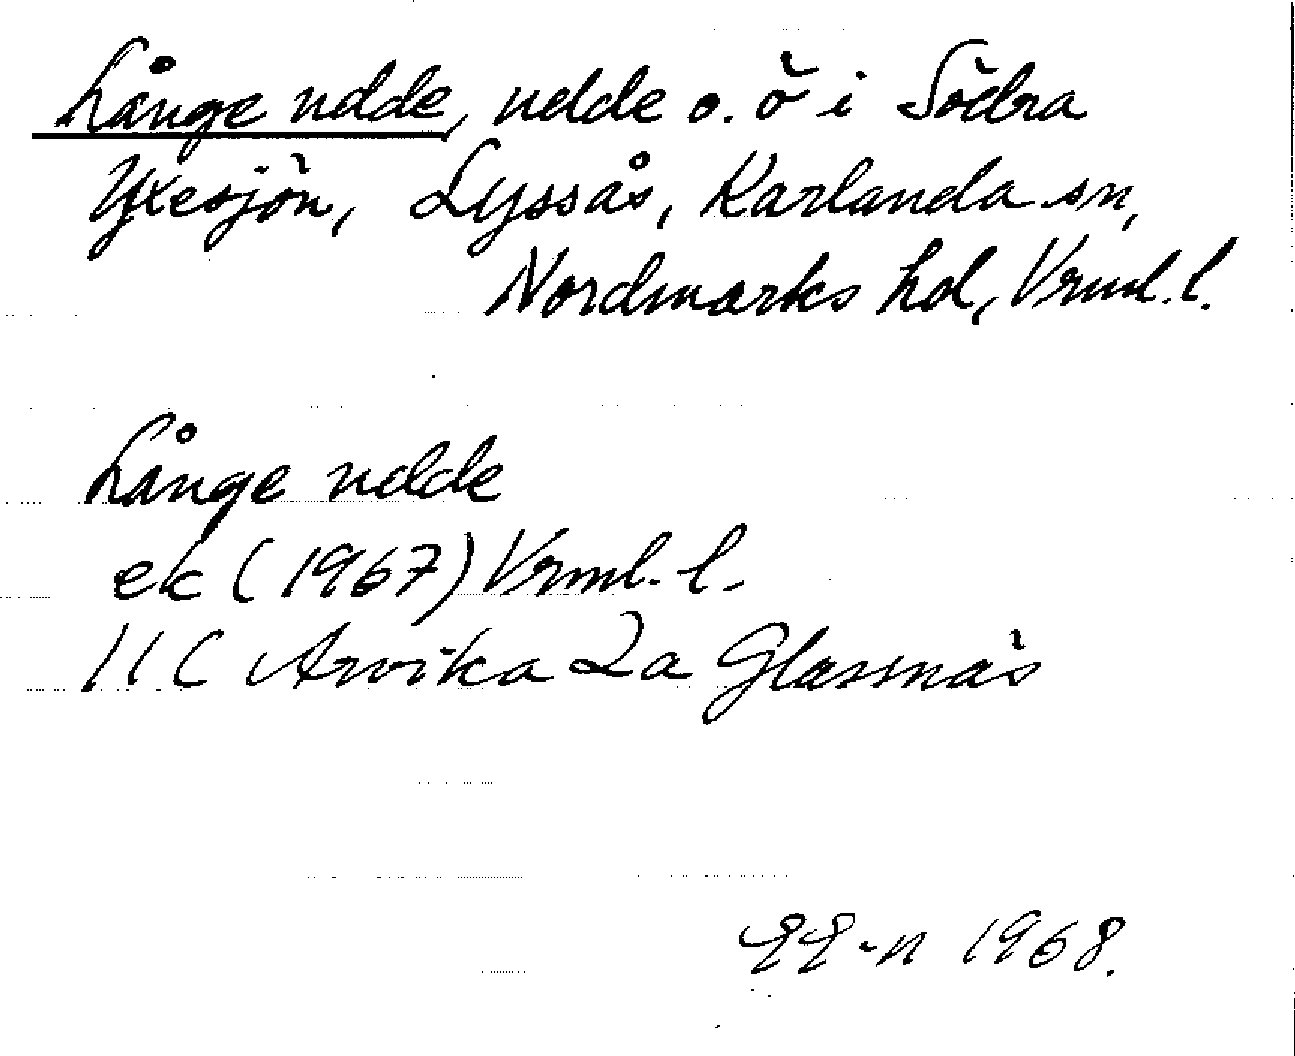 Långe udde, udde o. ö i Södra
Yxesjön, Lyssås, Karlanda sn,
Nordmarks hd, Vrml. l.
Långe udde
ek (1967) Vrml. l.
11 C Arvika 2a Glassnäs
1968.